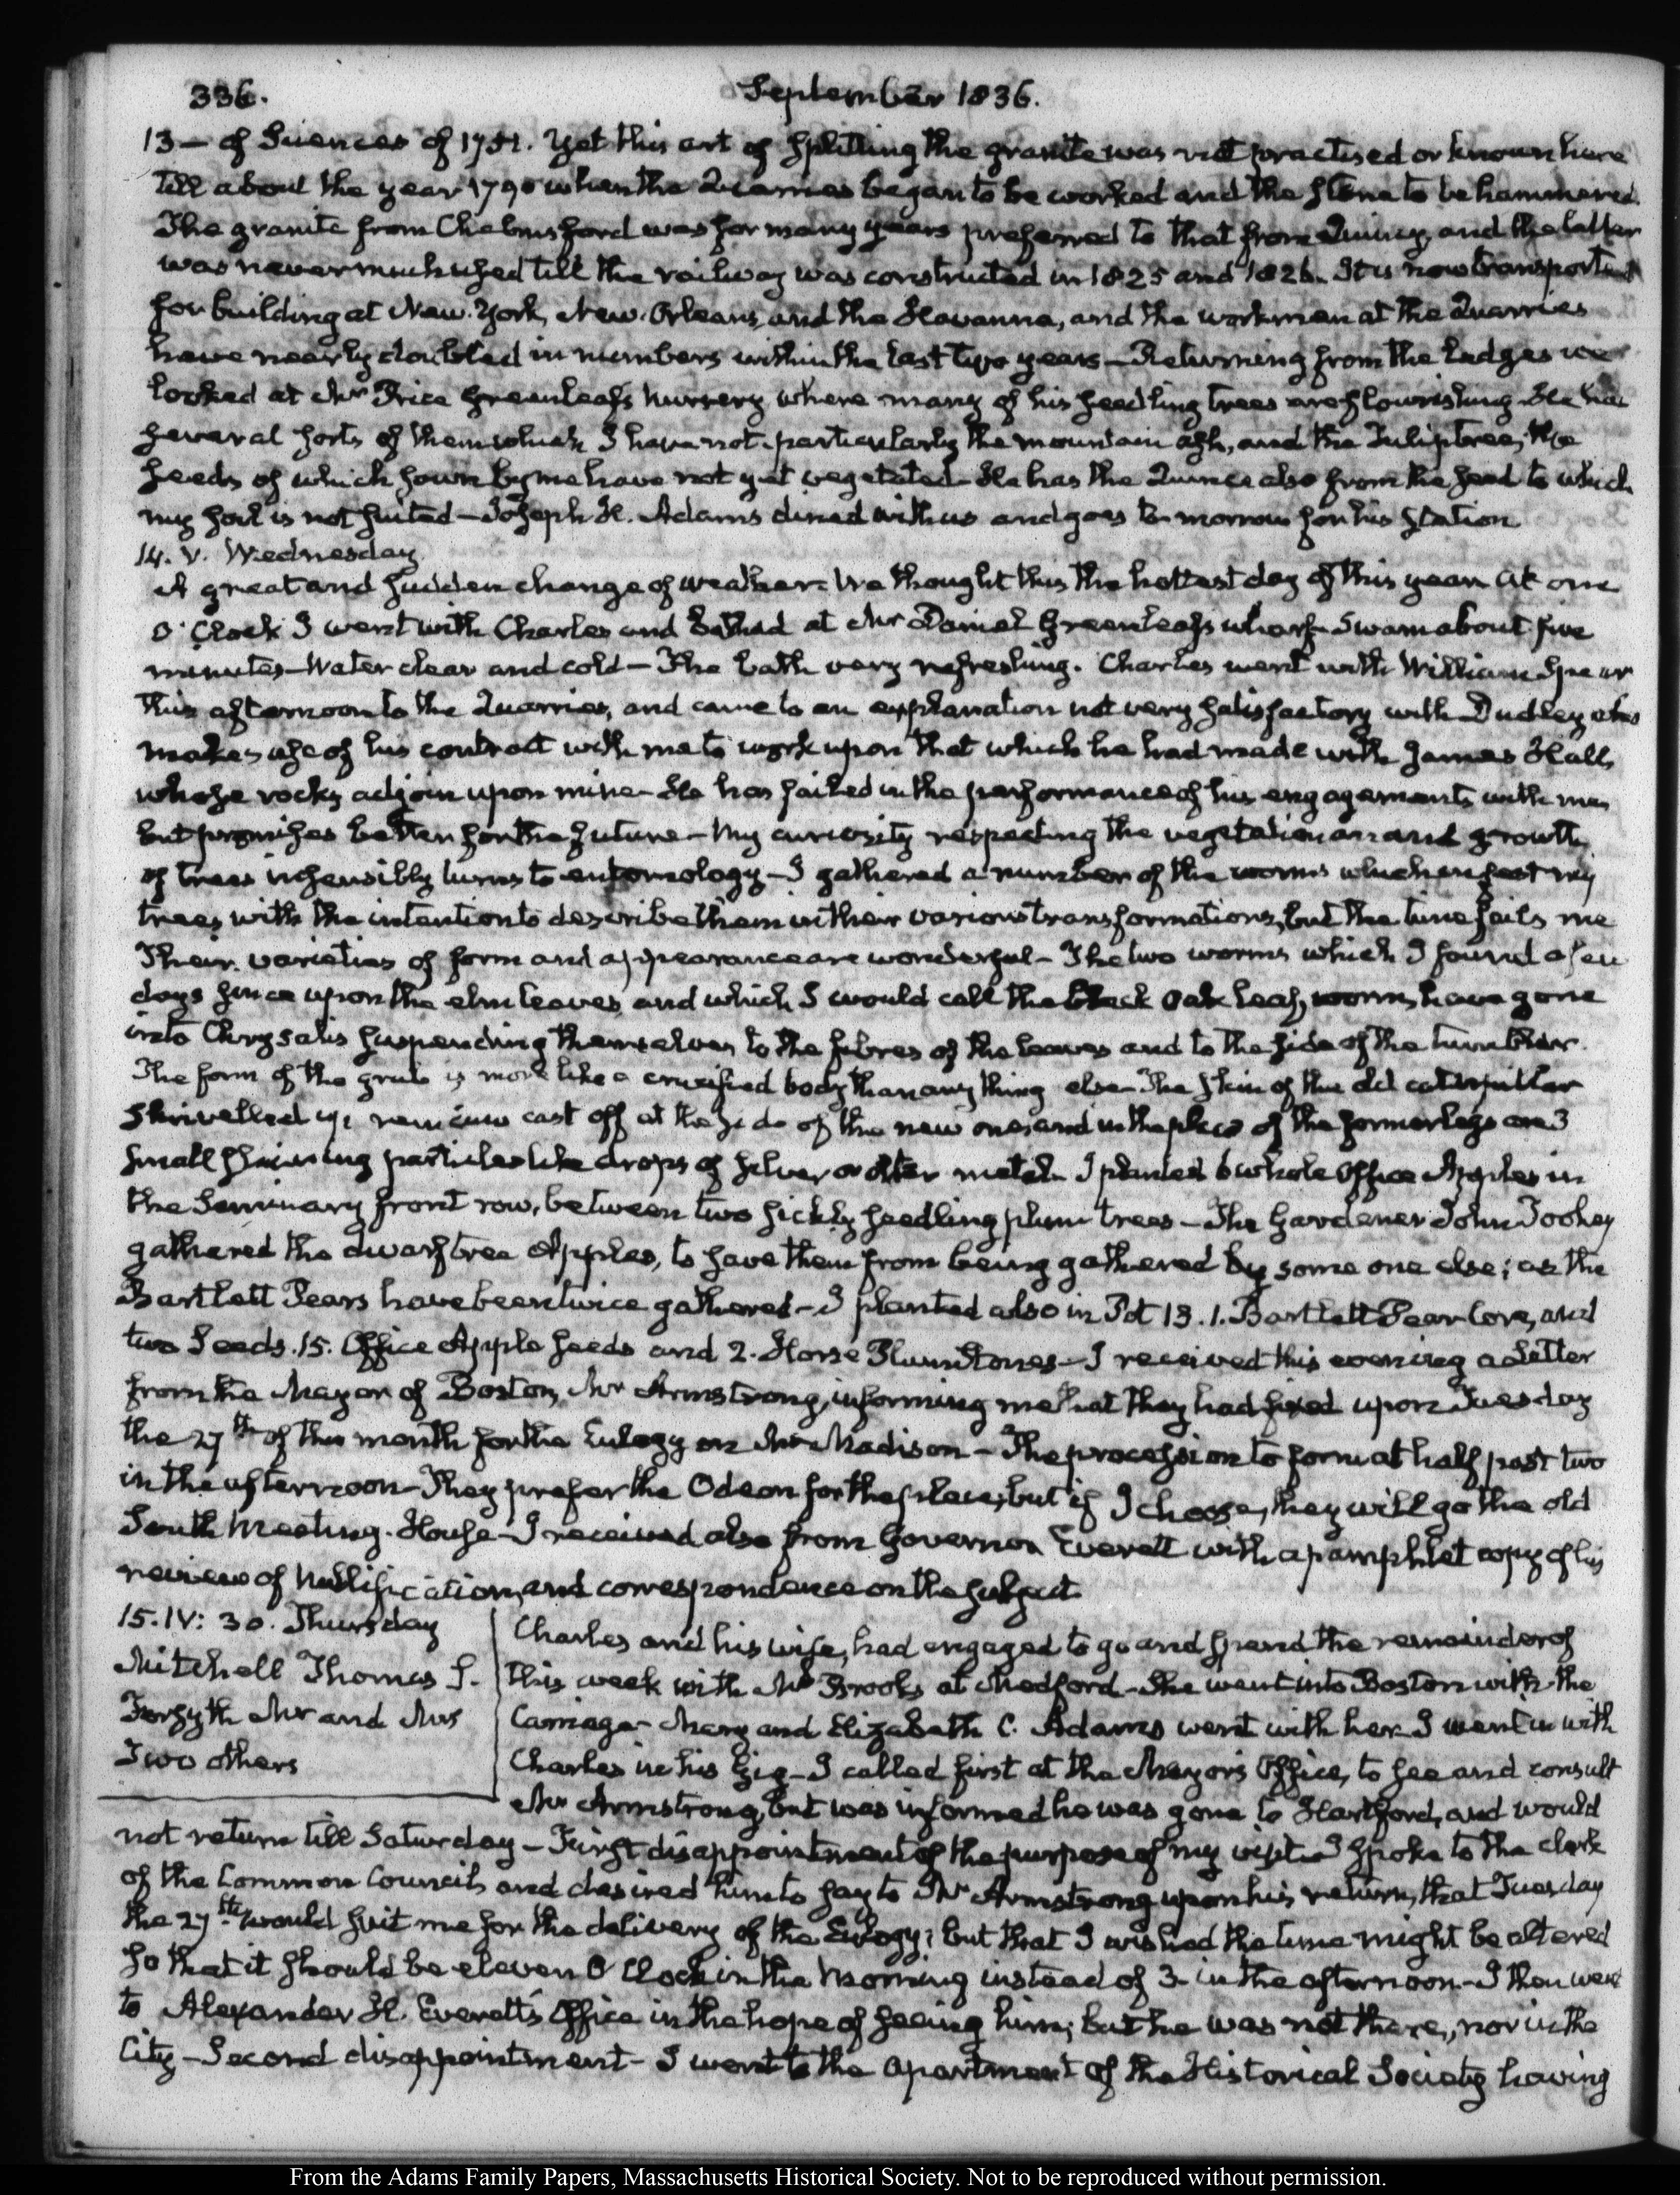 336.
September 1836.
13 — of Sciences of 1751. Yet this art of splitting the granite was not practised or known here
till about the year 1790 when the Quarries began to be worked and the stone to be hammered.
The granite from Chelmsford was for many years preferred to that from Quincy, and the latter
was never much used till the railway was constructed in 1825 and 1826. It is now transported
for building at New-York, New-Orleans, and the Havanna, and the workmen at the Quarries
have nearly doubled in numbers within the last two years — Returning from the ledges we
looked at Mr Price Greenleaf's nursery where many of his seedling trees are flourishing. He has
several sorts of them which I have not — particularly the mountain ash, and the Tulip tree, the
seeds of which sown by me have not yet vegetated — He has the Quince also from the seed to which
my soil is not suited — Joseph H. Adams dined with us and goes to-morrow for his station
14. V. Wednesday
A great and sudden change of weather. We thought this the hottest day of this year. At one
O'Clock I went with Charles and bathed at Mr Daniel Greenleaf's wharf — Swam about five
minutes — Water clear and cold — The bath very refreshing. Charles went with William Spear
this afternoon to the Quarries, and came to an explanation not very satisfactory with Dudley who
makes use of his contract with me to work upon that which he had made with James Hall,
whose rocks adjoin upon mine — He has failed in the performance of his engagements with me,
but promises better for the future — My curiosity respecting the vegetation and growth
of trees insensibly turns to entomology — I gathered a number of the worms which infest my
trees with the intention to describe them in their various transformations, but the time fails me
Their varieties of form and appearance are wonderful — The two worms which I found a few
days since upon the elm leaves and which I would call the black oak leaf, worm, have gone
into Chrysalis suspending themselves to the fibres of the leaves and to the side of the tumbler.
The form of the grub is more like a crucified body than any thing else — The skin of the old caterpillar
shrivelled up remains cast off at the side of the new one, and in the place of the former legs are 3
small shining particles like drops of silver or other metal. I planted 6 whole Office Apples in
the Seminary front row, between two sickly seedling plum trees — The Gardener John Toohey
gathered the dwarf tree Apples, to save them from being gathered by some one else; as the
Bartlett Pears have been twice gathered — I planted also in Pot 13. 1. Bartlett Pear Core, and
two Seeds. 15. Office Apple seeds and 2. Horse Plum Stones — I received this evening a Letter
from the Mayor of Boston, Mr Armstrong, informing me that they had fixed upon Tuesday
the 27th of this month for the Eulogy on Mr Madison — The procession to form at half past two
in the afternoon — They prefer the Odeon for the place, but if I choose, they will go the old
South Meeting-House — I received also from Governor Everett with a pamphlet copy of his
review of Nullification, and correspondence on the subject
15. IV: 30. Thursday
Mitchell Thomas J.
Forsyth Mr and Mrs
Two others
Charles and his wife, had engaged to go and spend the remainder of
this week with Mr Brooks at Medford — She went into Boston with the
Carriage — Mary and Elizabeth C. Adams went with her. I went in with
Charles in his Gig — I called first at the Mayor's Office, to see and consult
Mr Armstrong, but was informed he was gone to Hartford, and would
not return till Saturday — First disappointment of the purpose of my visit — I spoke to the clerk
of the Common Council, and desired him to say to Mr Armstrong upon his return, that Tuesday
the 27th would suit me for the delivery of the Eulogy; but that I wished the time might be altered
so that it should be eleven O'Clock in the morning instead of 3 in the afternoon — I then went
to Alexander H. Everett's Office in the hope of seeing him; but he was not there, nor in the
City — Second disappointment — I went to the apartment of the Historical Society having
From the Adams Family Papers, Massachusetts Historical Society. Not to be reproduced without permission.